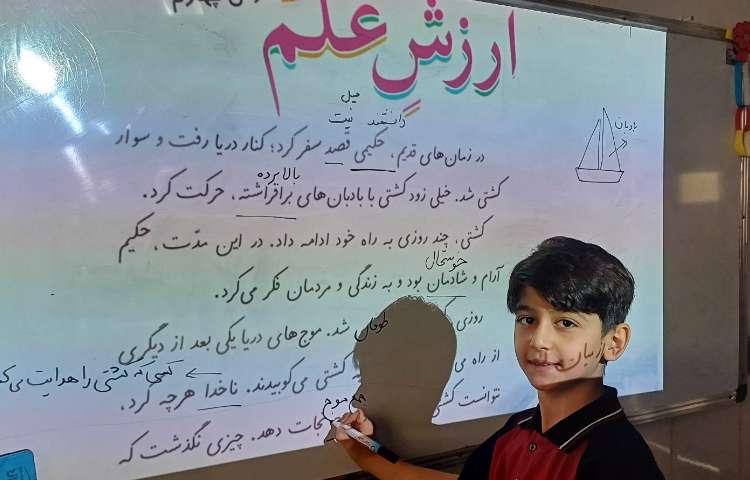 ارزش علم
میل
دانشمند نیت
بادبان
در زمان‌های قدیم، حکیمی قصد سفر کرد؛ کنار دریا رفت و سوار
بالا برده
کشتی شد. خیلی زود کشتی با بادبان‌های برافراشته، حرکت کرد.
کشتی، چند روزی به راه خود ادامه داد. در این مدّت، حکیم
خوشحال
آرام و شادمان بود و به زندگی و مردمان فکر می‌کرد.
روزی طوفان شد. موج‌های دریا یکی بعد از دیگری
از راه می به کشتی می‌کوبیدند. ناخدا هرچه کرد،
کسی که کشتی را هدایت می‌کند
موج
نتوانست کشتی نجات دهد. چیزی نگذشت که